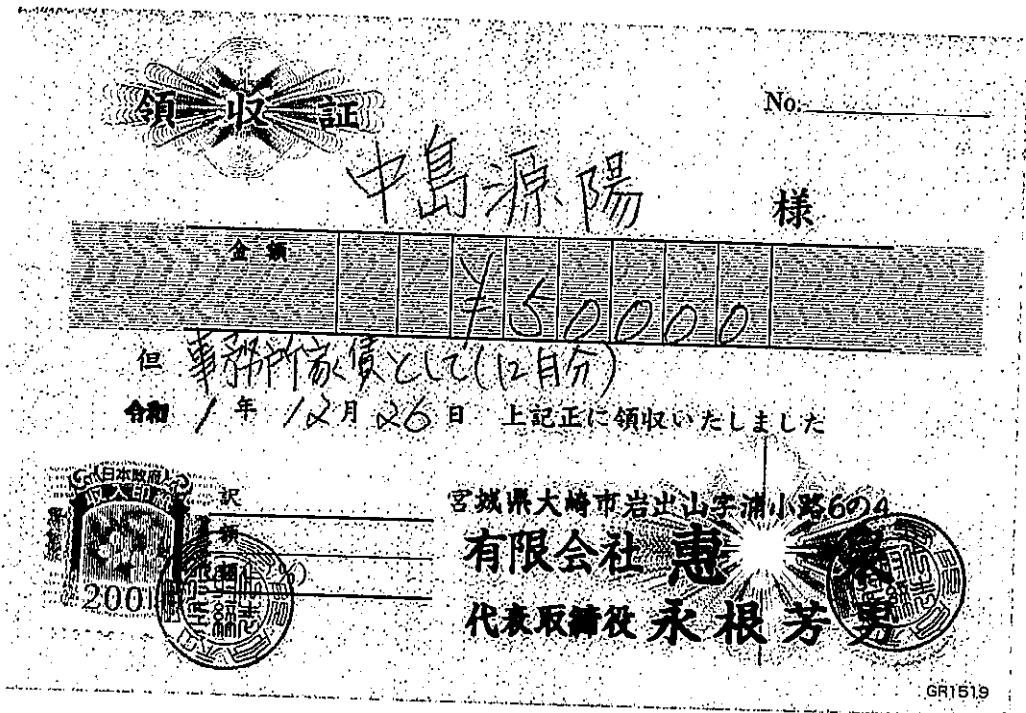 領収証
No.
中島源陽 様
金額
¥50000
但 事務所家賃として(12月分)
令和 1年 12月 26日 上記正に領収いたしました
日本政府
収入印紙
200
訳
宮城県大崎市岩出山字浦小路604
有限会社 恵
代表取締役 永根芳男
GR1519